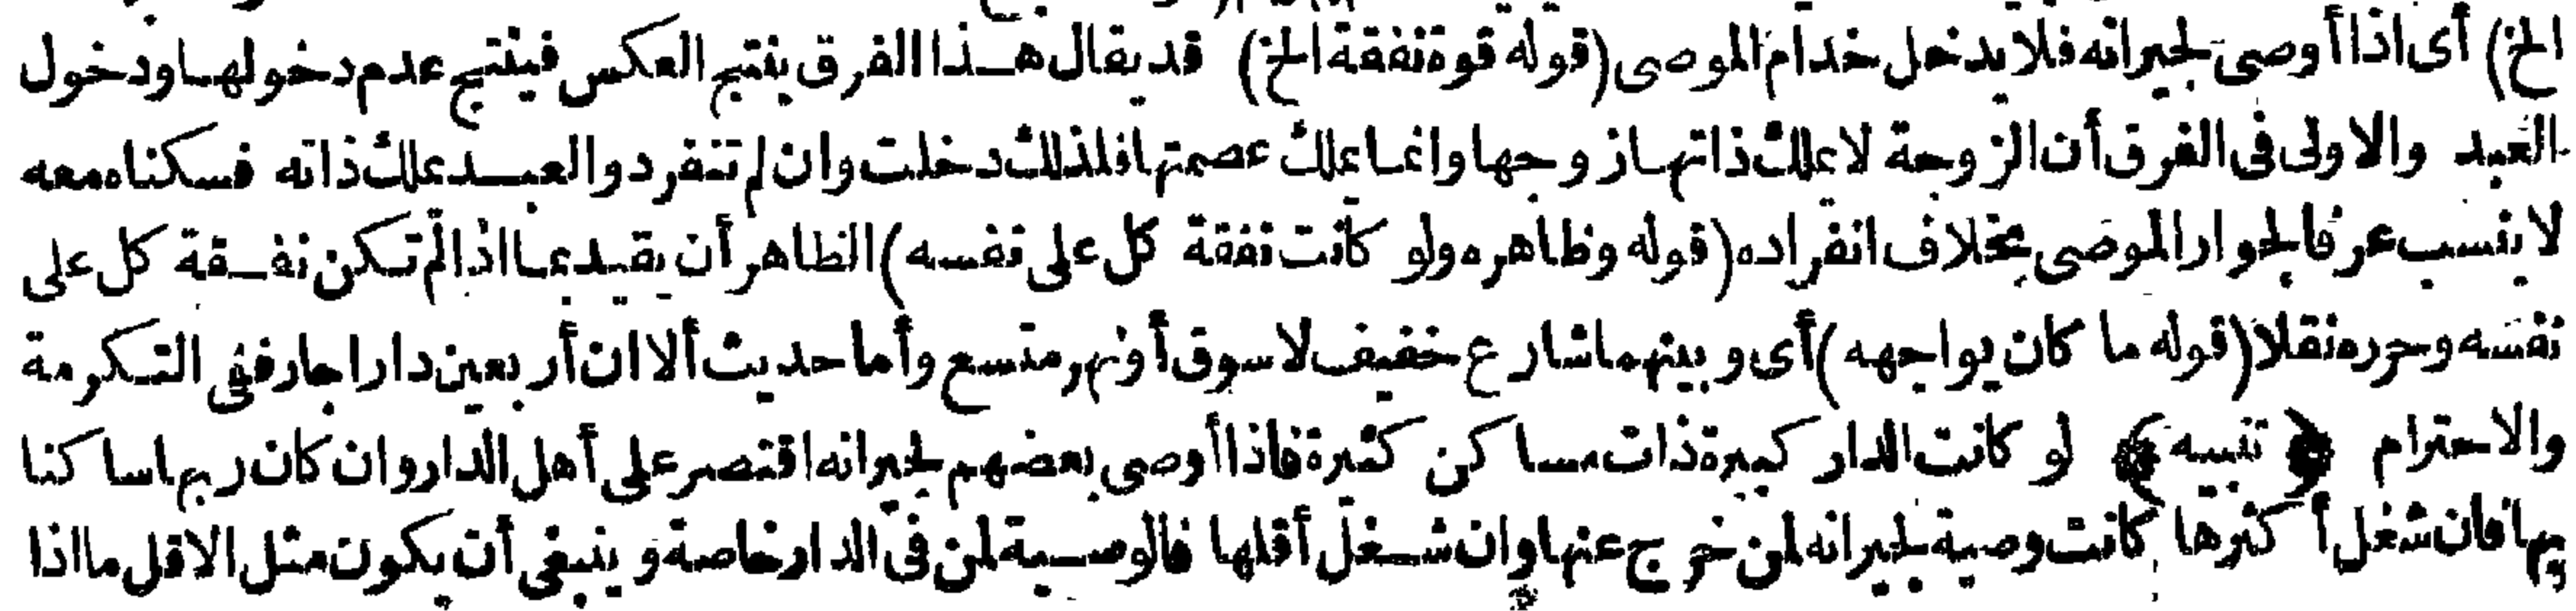 الخ) أى اذا أوصى لجيرانه فلا يدخل خدام الموصى (قوله قوة نفقة الخ) قد يقال هذا الفرق ينتج العكس فينتج عدم دخولها ودخول
العبد والاولى فى الفرق أن الزوجة لا يملك ذاتها زوجها وانما يملك عصمتها فلذلك دخلت وان لم تنفرد والعبد يملك ذاته فسكناه معه
لا ينسب عرفا لجوار الموصى بخلاف انفراده (قوله وظاهره ولو كانت نفقة كل على نفسه) الظاهر أن يقيد بما اذا لم تكن نفقة كل على
نفسه وحرره نقلا (قوله ما كان يواجهه) أى وبينهما شارع خفيف لا سوق أو نهر متسع وأما حديث ألا ان أربعين دارا جار ففى التكرمة
والاحترام ﴿ تنبيه ﴾ لو كانت الدار كبيرة ذات مساكن كثيرة فاذا أوصى بعضهم لجيرانه اقتصر على أهل الدار وان كان ربها ساكنا
بها فان شغل أكثرها كانت وصية لجيرانه لمن خرج عنها وان شغل أقلها فالوصية لمن فى الدار خاصة وينبغى أن يكون مثل الاقل ما اذا